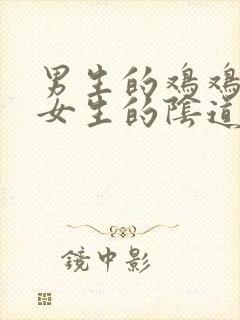 男生的鸡鸡
女生的阴道
镜中影